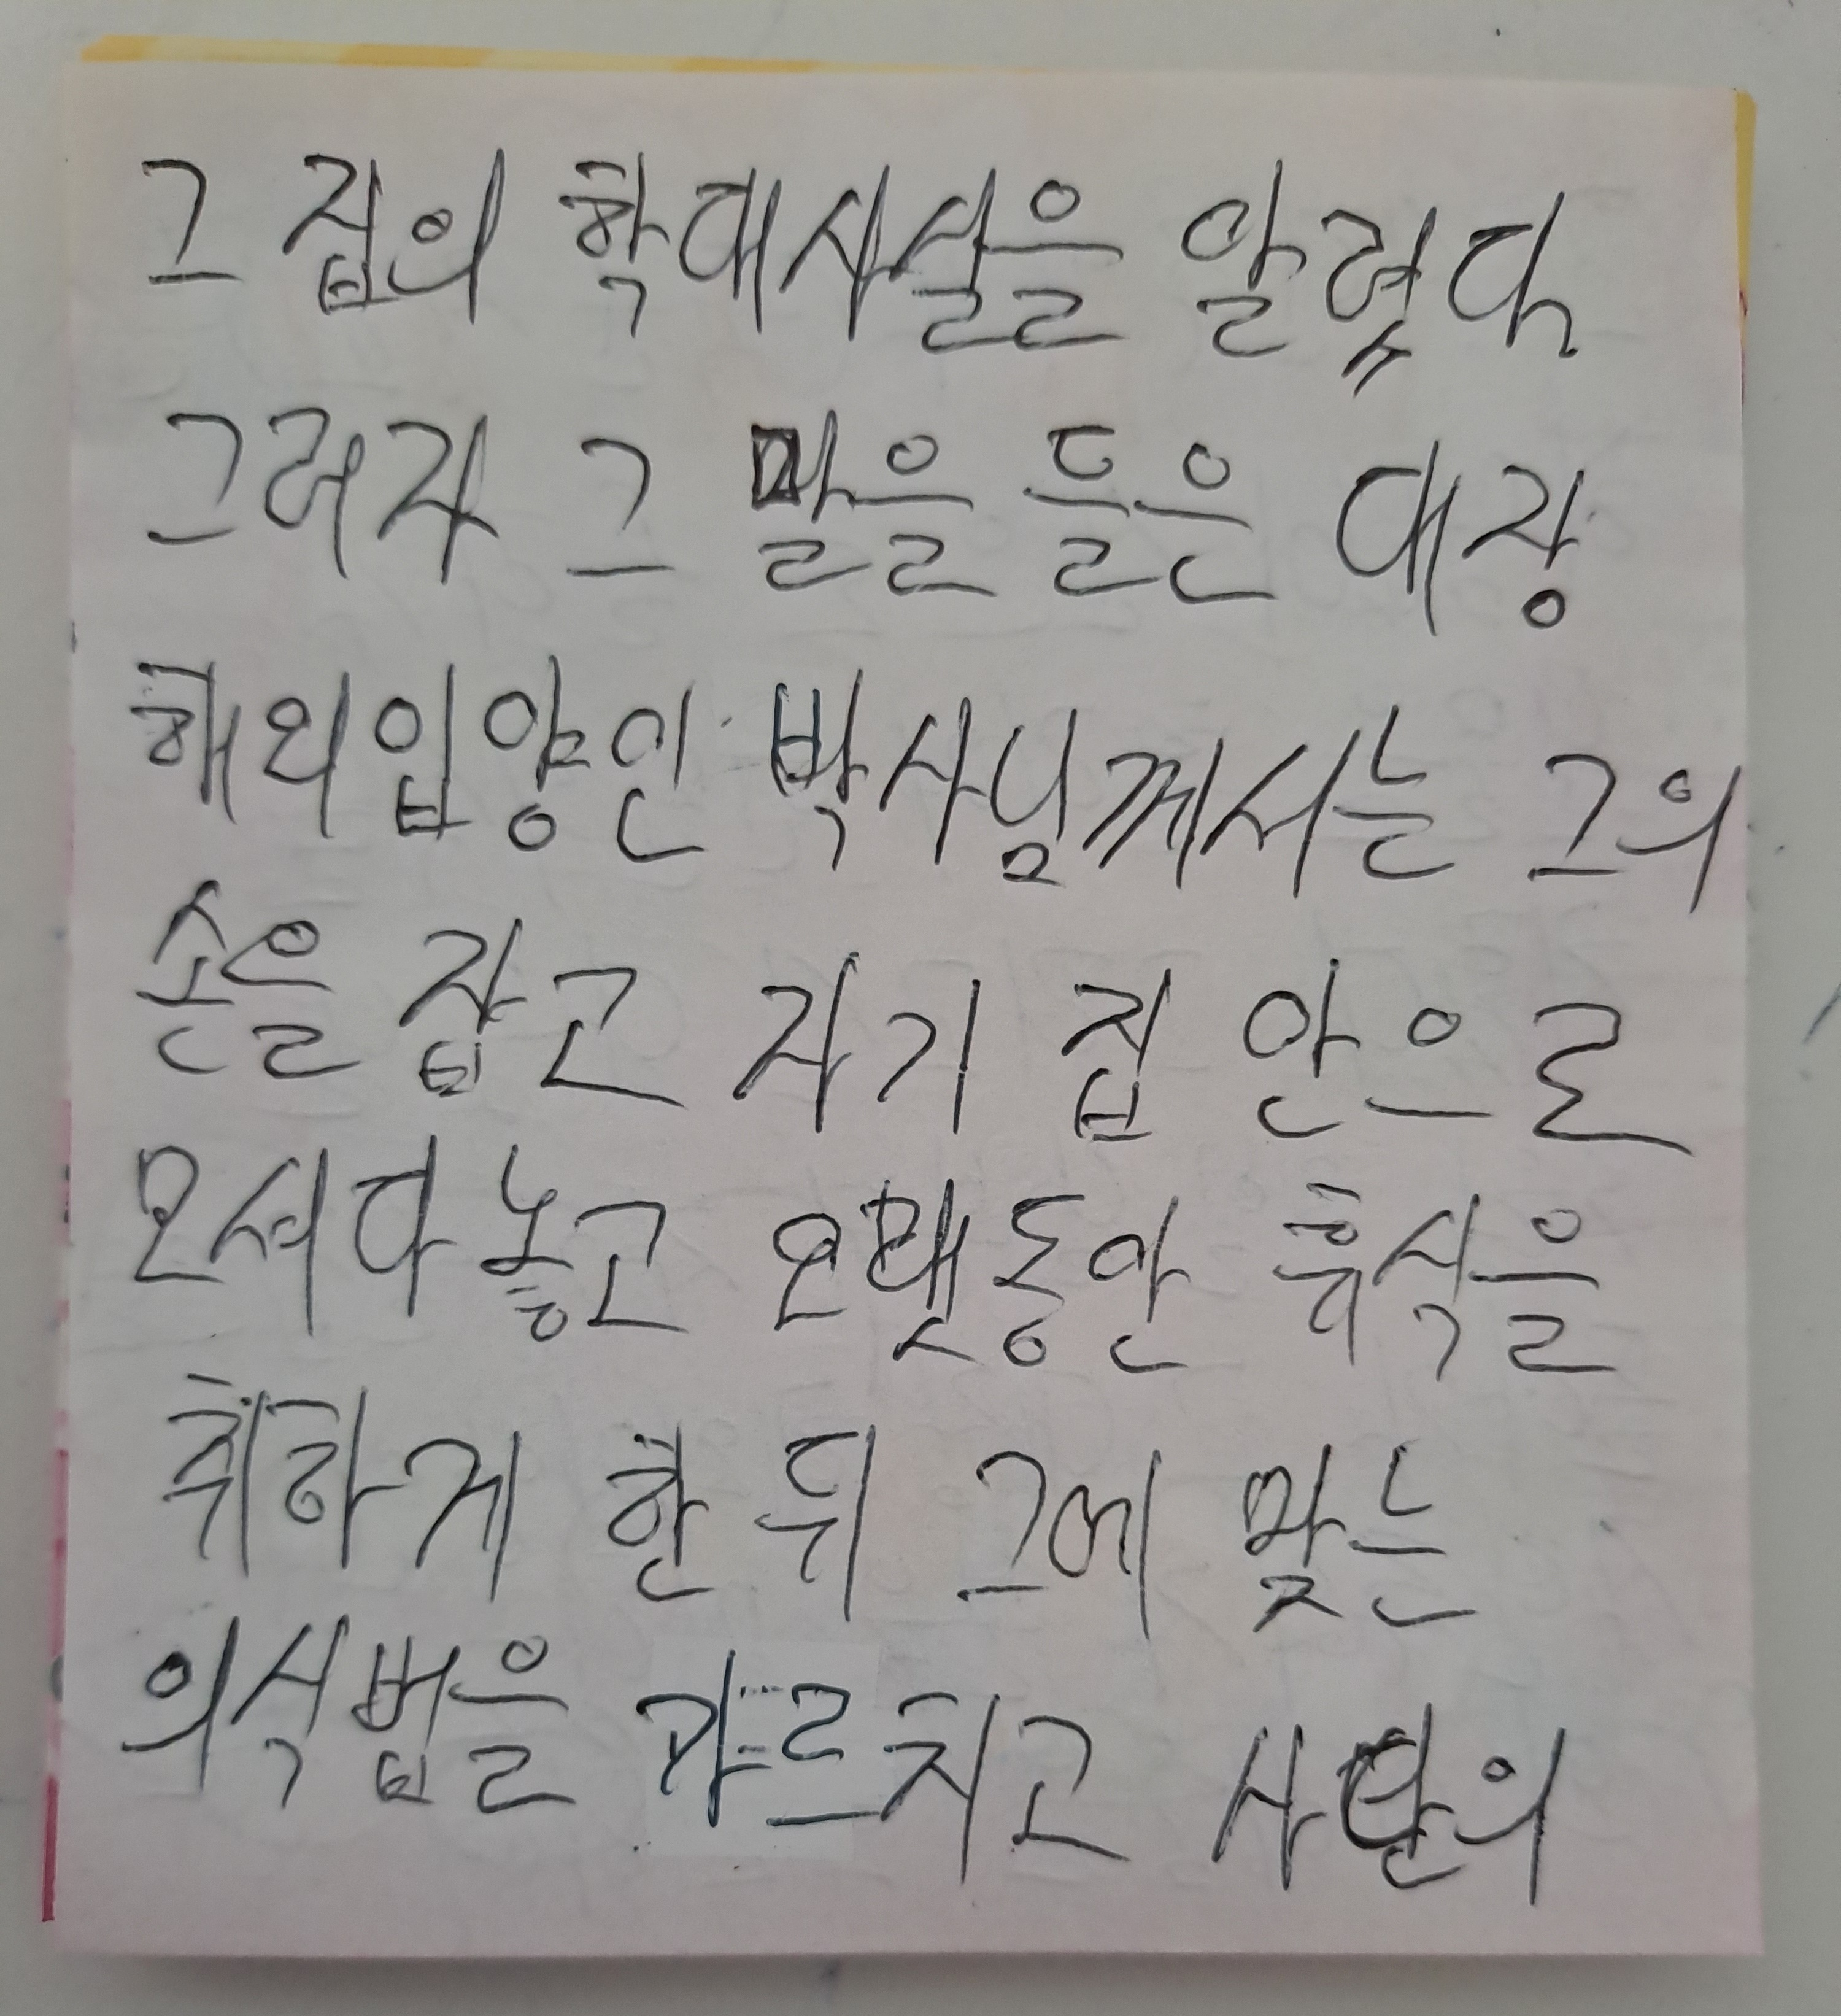 그 집의 학대사실을 알렸다.
그러자 그 말을 들은 대장
해외입양인 박사님께서는 그의
손을 잡고 자기 집 안으로
모셔다 놓고 오랫동안 휴식을
취하게 한 뒤 그에 맞는
의식법을 가르치고 사탄의